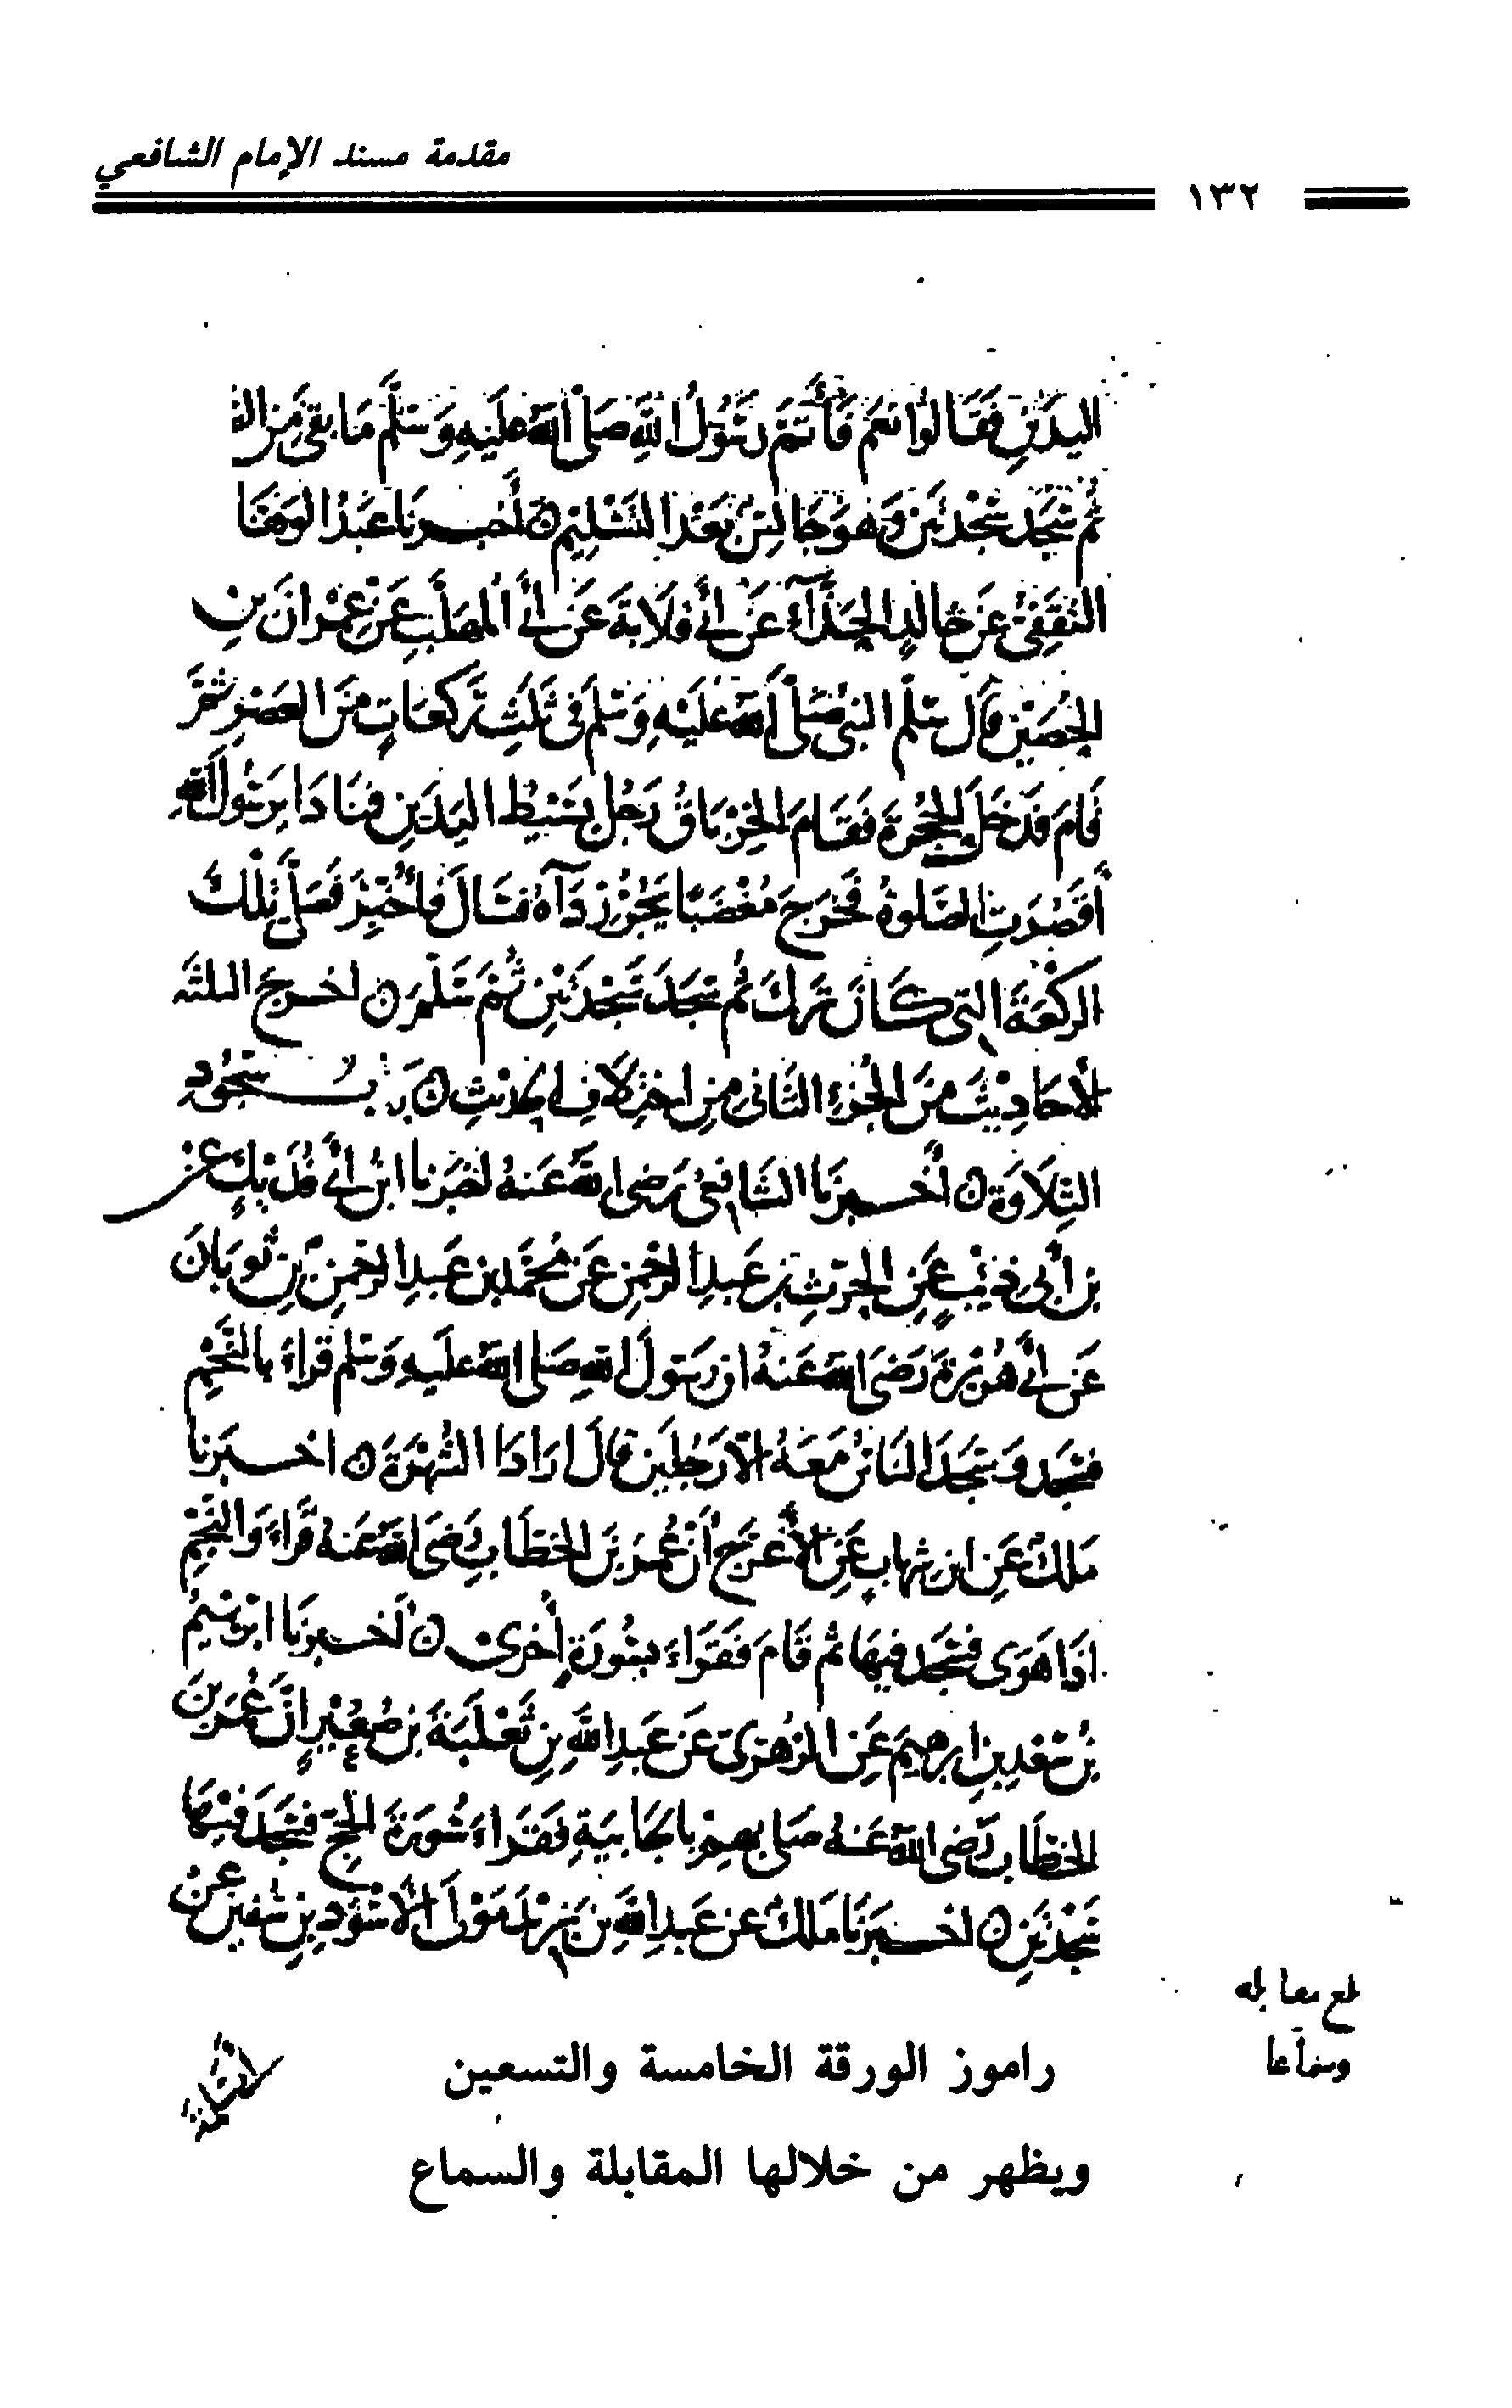 مقدمة مسند الإمام الشافعي
١٣٢
اليدين فقالوا نعم فأتم رسول الله صلى الله عليه وسلم ما بقي من الصلاة
ثم سجد سجدتين وهو جالس بعد التسليم ○ أخبرنا عبد الوهاب
الثقفي عن خالد الحذآء عن أبي قلابة عن أبي المهلب عن عمران بن
الحصين قال سلم النبي صلى الله عليه وسلم في ثلث ركعات من العصر ثم
قام فدخل الحجرة فقام الخرباق رجل بسيط اليدين فنادا يرسول الله
أقصرت الصلوة فخرج مغضبا يجر ردآه فسال فأخبر فصلى تلك
الركعة التي كان ترك ثم سجد سجدتين ثم سلم ○ اخرج الثلثه
الأحاديث من الجزء الثاني من اختلاف الحديث ○ باب سجود
التلاوة ○ أخبرنا الشافعي رضي الله عنه اخبرنا ابن أبي فديك عن
بن أبي ذئب عن الحرث بن عبد الرحمن عن محمد بن عبد الرحمن بن ثوبان
عن أبي هريرة رضي الله عنه ان رسول الله صلى الله عليه وسلم قراء بالنجم
فسجد وسجد الناس معه الا رجلين قال ارادا الشهرة ○ اخبرنا
ملك عن ابن شهاب عن الأعرج أن عمر بن الخطاب رضي الله عنه قراء والنجم
اذا هوى فسجد فيها ثم قام فقراء بسورة اخرى ○ أخبرنا ابرهيم
بن سعد بن ابرهيم عن الزهري عن عبد الله بن ثعلبة بن صعير أن عمر بن
الخطاب رضي الله عنه صلى بهم بالجابية فقراء سورة الحج فسجد فيها
سجدتين ○ اخبرنا ملك عن عبد الله بن يزيد مولى الأسود بن سفين عن
بلغ مقابله
وسماعا
راموز الورقة الخامسة والتسعين
ويظهر من خلالها المقابلة والسماع